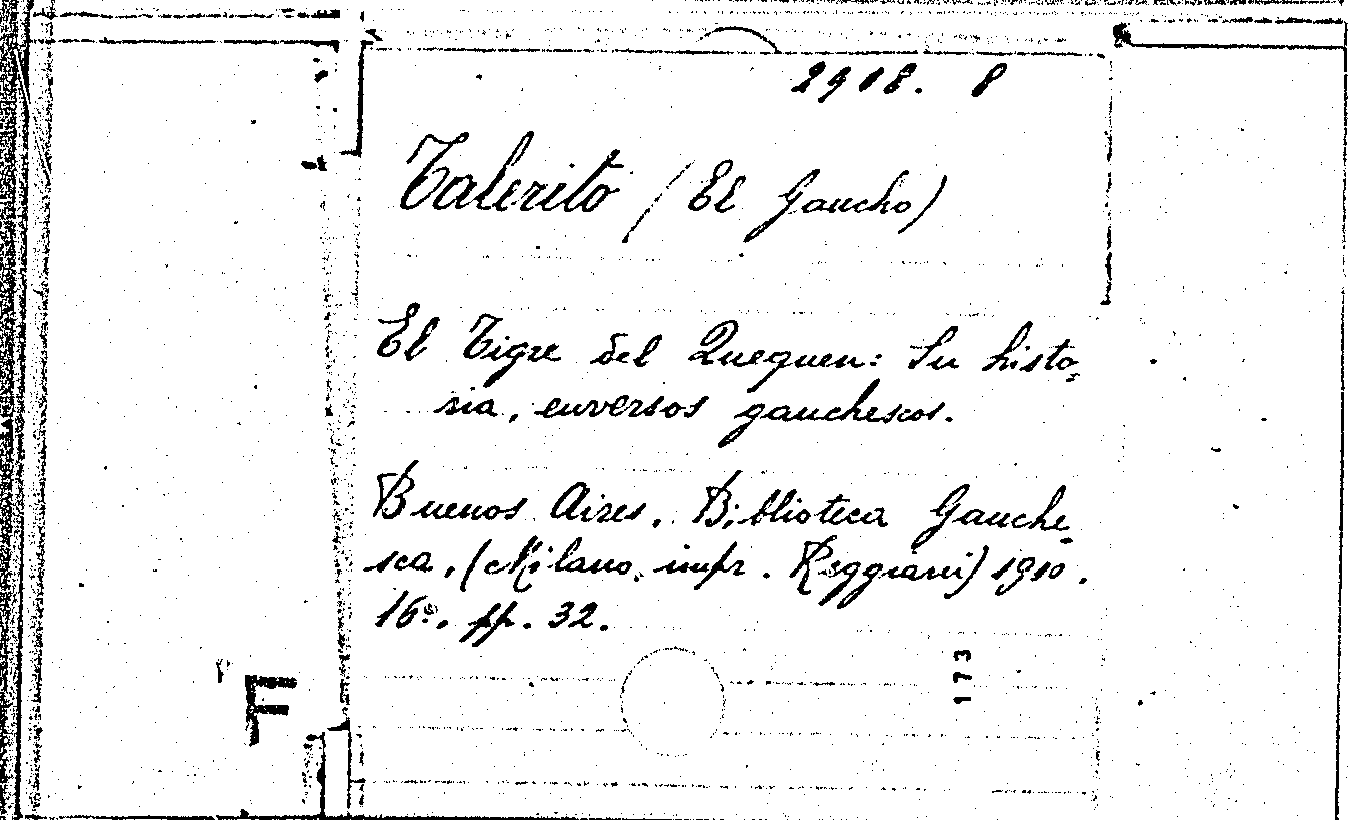 2908. 8
Talerito (El Gaucho)
El Tigre del Quequen: Su histo=
ria, enversos gauchescos.
Buenos Aires. Biblioteca Gauche=
sca, (Milano, impr. Reggiani) 1910.
16º. pp. 32.
173
F